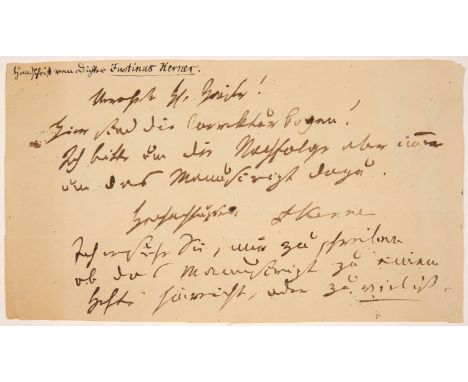 Handschrift vom Dichter Justinus Kerner.
Hier sind die Correkturbogen!
Ich bitte um die Nachfolge aber immer
um das Manuscript dazu.
Kerner
Ich ersuche Sie, mir zu schreiben
ob das Manuscript zu einem
Hefte hinreicht, oder zu viel ist.